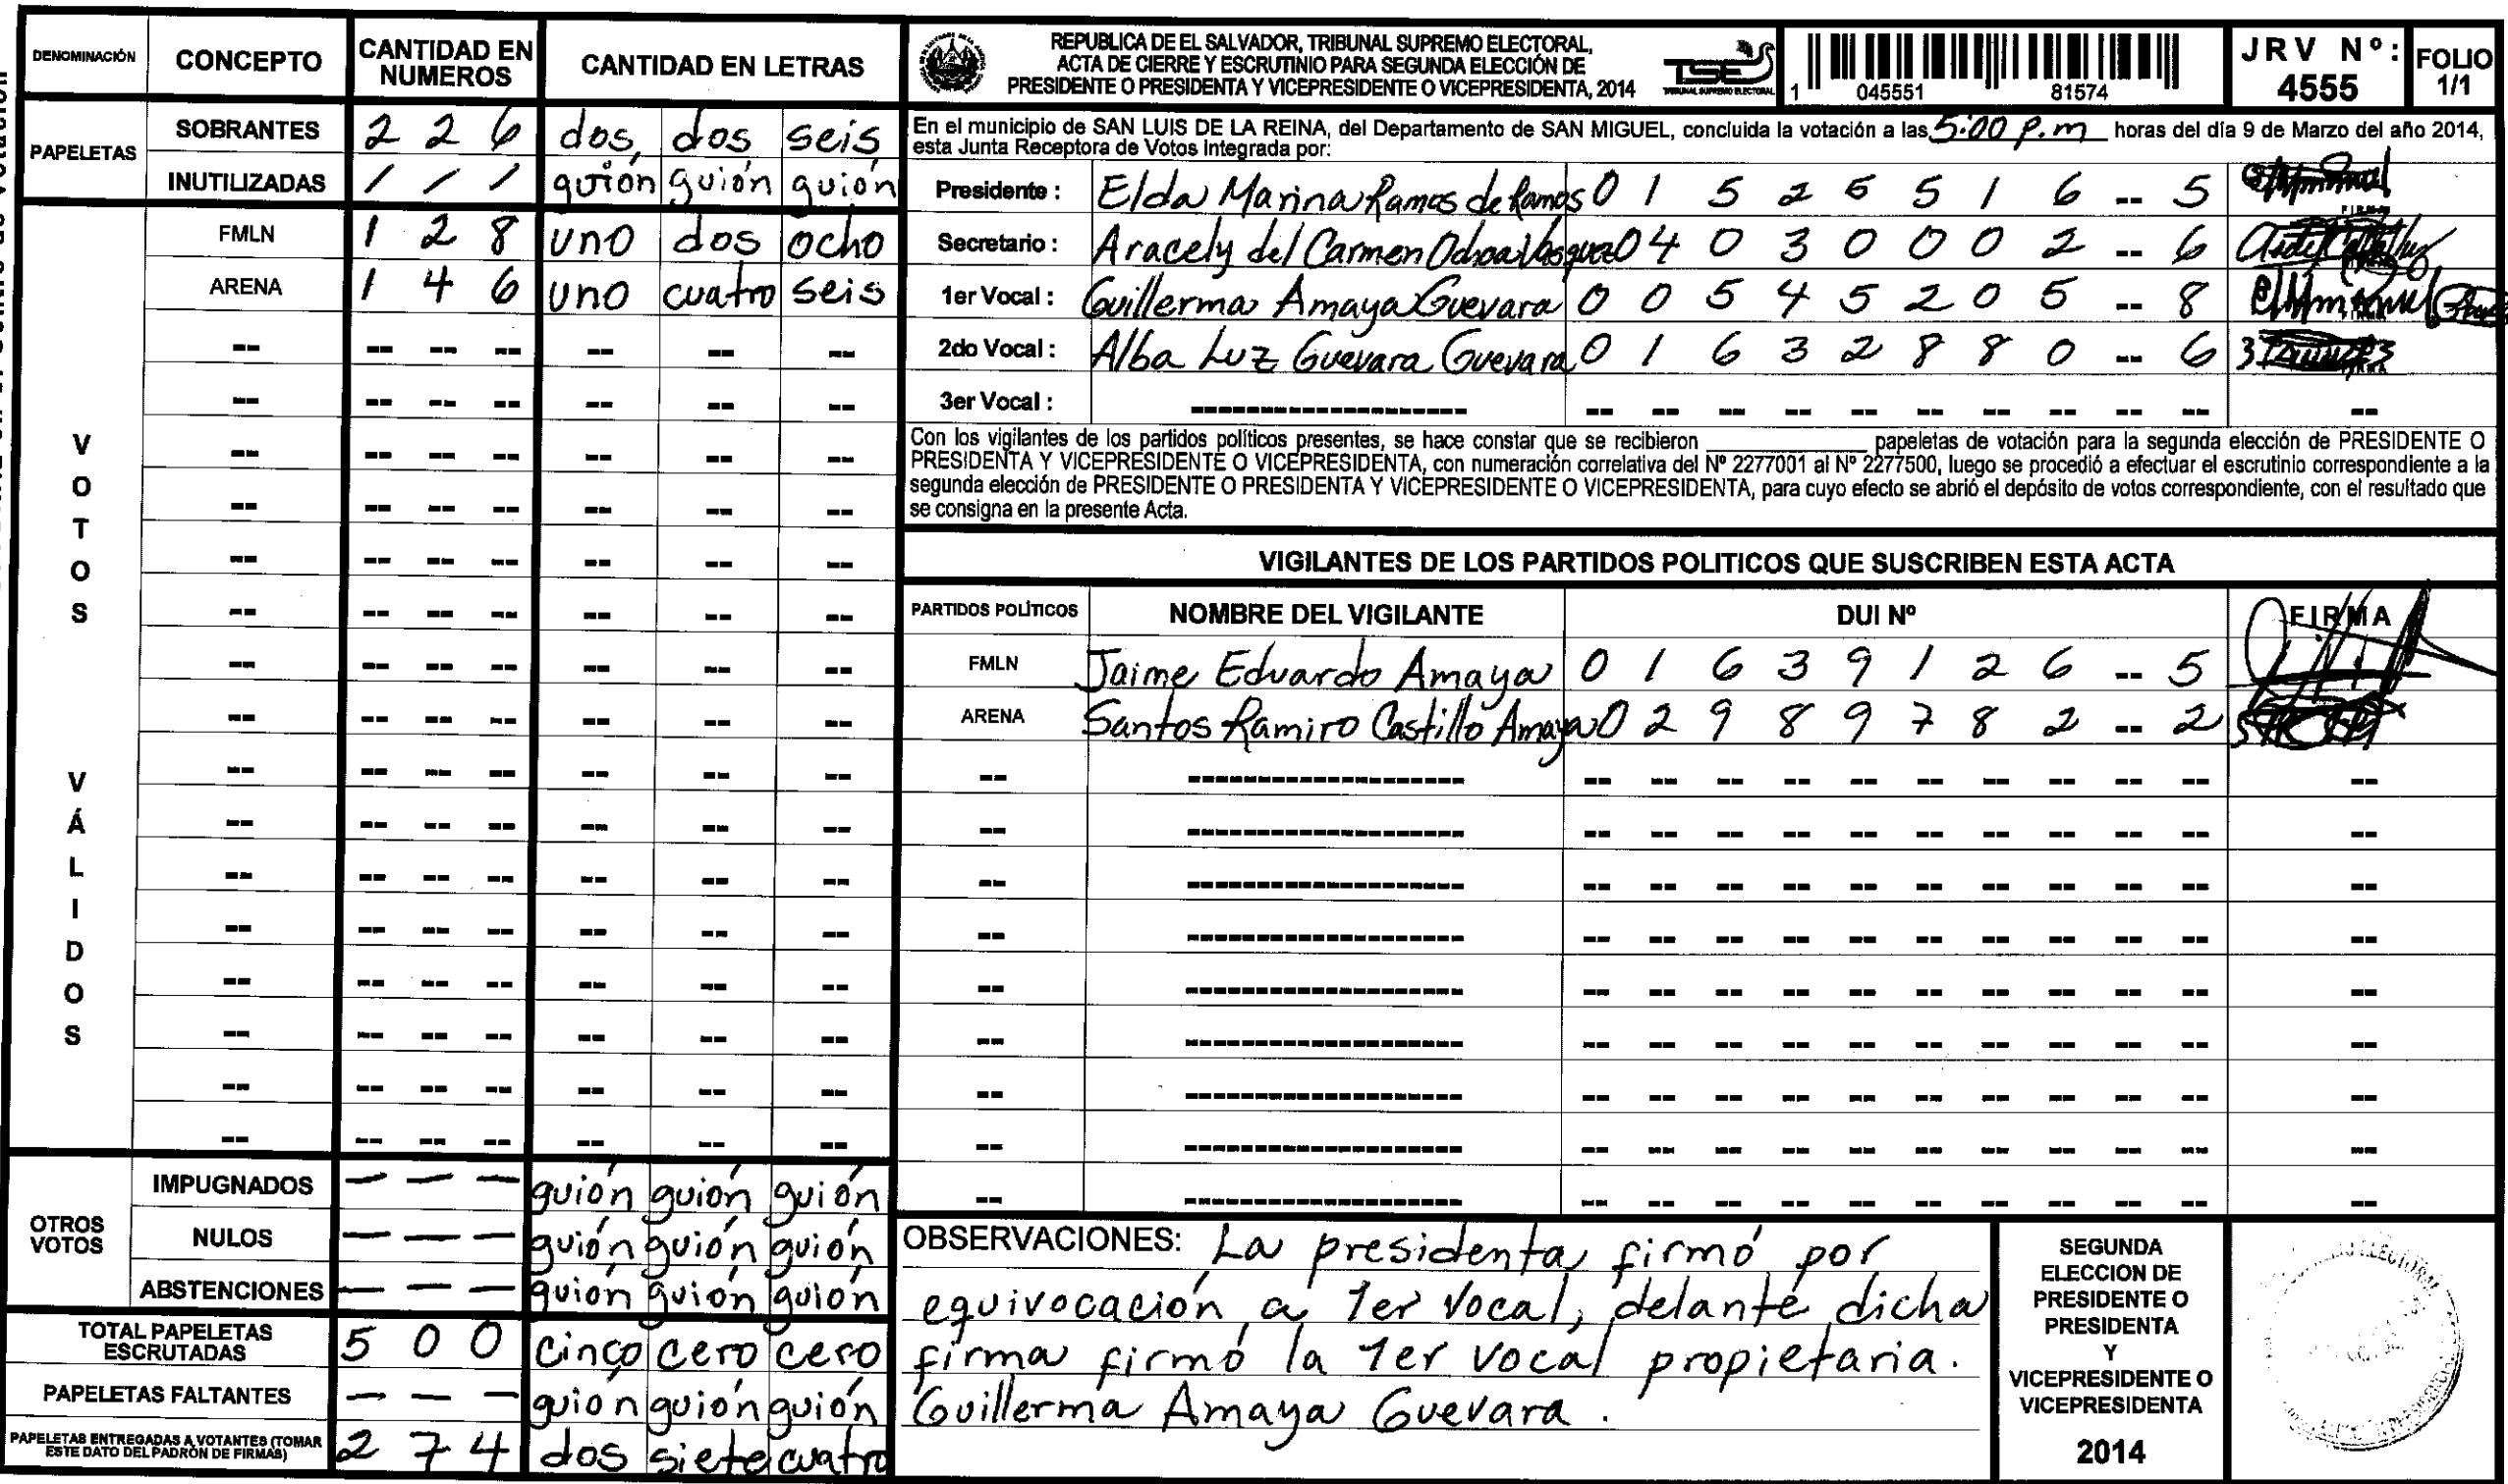 DENOMINACIÓN CONCEPTO CANTIDAD EN NUMEROS CANTIDAD EN LETRAS
PAPELETAS
SOBRANTES 2 2 6 dos dos seis
INUTILIZADAS / / / guión guión guión
VOTOS VÁLIDOS
FMLN 1 2 8 uno dos ocho
ARENA 1 4 6 uno cuatro seis
OTROS VOTOS
IMPUGNADOS — — — guión guión guión
NULOS — — — guión guión guión
ABSTENCIONES — — — guión guión guión
TOTAL PAPELETAS ESCRUTADAS 5 0 0 cinco cero cero
PAPELETAS FALTANTES — — — guión guión guión
PAPELETAS ENTREGADAS A VOTANTES (TOMAR ESTE DATO DEL PADRÓN DE FIRMAS) 2 7 4 dos siete cuatro
REPUBLICA DE EL SALVADOR, TRIBUNAL SUPREMO ELECTORAL,
ACTA DE CIERRE Y ESCRUTINIO PARA SEGUNDA ELECCIÓN DE
PRESIDENTE O PRESIDENTA Y VICEPRESIDENTE O VICEPRESIDENTA, 2014
TSE
TRIBUNAL SUPREMO ELECTORAL
1 045551 81574
JRV Nº: 4555
FOLIO 1/1
En el municipio de SAN LUIS DE LA REINA, del Departamento de SAN MIGUEL, concluida la votación a las 5:00 p.m horas del día 9 de Marzo del año 2014,
esta Junta Receptora de Votos Integrada por:
Presidente : Elda Marina Ramos de Ramos 0 1 5 2 5 5 1 6 -- 5
Secretario : Aracely del Carmen Ochoa Vásquez 0 4 0 3 0 0 0 2 -- 6
1er Vocal : Guillerma Amaya Guevara 0 0 5 4 5 2 0 5 -- 8
2do Vocal : Alba Luz Guevara Guevara 0 1 6 3 2 8 8 0 -- 6
3er Vocal :
Con los vigilantes de los partidos políticos presentes, se hace constar que se recibieron ____ papeletas de votación para la segunda elección de PRESIDENTE O
PRESIDENTA Y VICEPRESIDENTE O VICEPRESIDENTA, con numeración correlativa del Nº 2277001 al Nº 2277500, luego se procedió a efectuar el escrutinio correspondiente a la
segunda elección de PRESIDENTE O PRESIDENTA Y VICEPRESIDENTE O VICEPRESIDENTA, para cuyo efecto se abrió el depósito de votos correspondiente, con el resultado que
se consigna en la presente Acta.
VIGILANTES DE LOS PARTIDOS POLITICOS QUE SUSCRIBEN ESTA ACTA
PARTIDOS POLÍTICOS NOMBRE DEL VIGILANTE DUI Nº FIRMA
FMLN Jaime Eduardo Amaya 0 1 6 3 9 1 2 6 -- 5
ARENA Santos Ramiro Castillo Amaya 0 2 9 8 9 7 8 2 -- 2
OBSERVACIONES: La presidenta firmó por
equivocación a 1er Vocal, delante dicha
firma firmó la 1er vocal propietaria.
Guillerma Amaya Guevara.
SEGUNDA
ELECCION DE
PRESIDENTE O
PRESIDENTA
Y
VICEPRESIDENTE O
VICEPRESIDENTA
2014